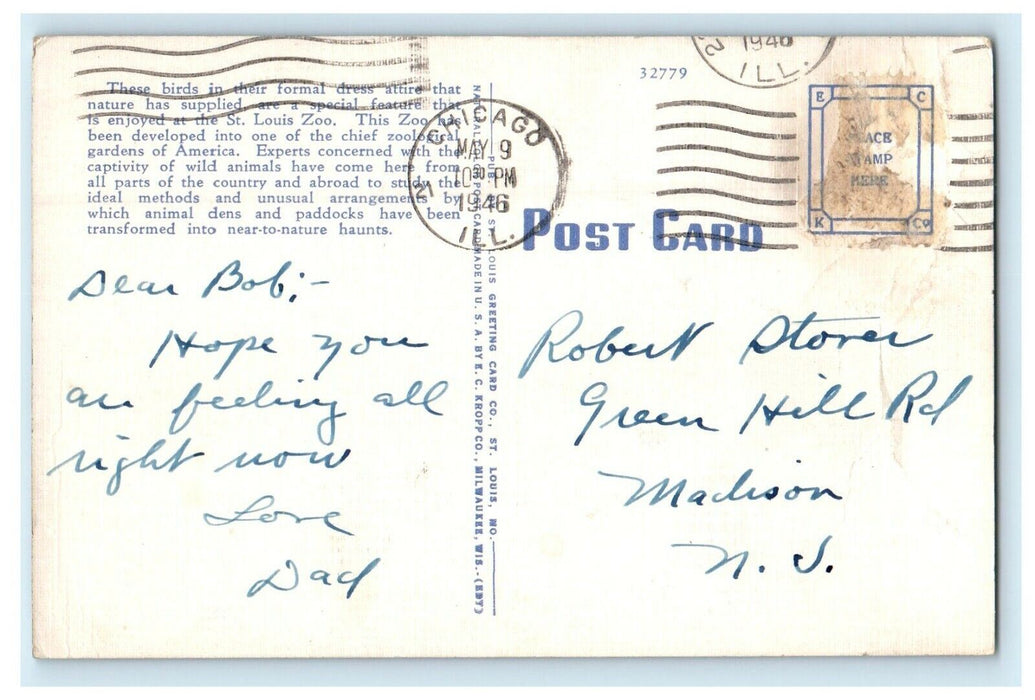 These birds in their formal dress attire that
nature has supplied, are a special feature that
is enjoyed at the St. Louis Zoo. This Zoo has
been developed into one of the chief zoological
gardens of America. Experts concerned with the
captivity of wild animals have come here from
all parts of the country and abroad to study the
ideal methods and unusual arrangements by
which animal dens and paddocks have been
transformed into near-to-nature haunts.
Dear Bob:-
Hope you
are feeling all
right now
Love
Dad
CHICAGO
MAY 9
10 30 PM
1946
ILL.
LOUIS GREETING CARD CO., ST. LOUIS, MO.
MADE IN U. S. A. BY E. C. KROPP CO., MILWAUKEE, WIS.-(EBY)
32779
1946
ILL.
E C
STAMP
HERE
K Co
POST CARD
Robert Storer
Green Hill Rd
Madison
N. J.